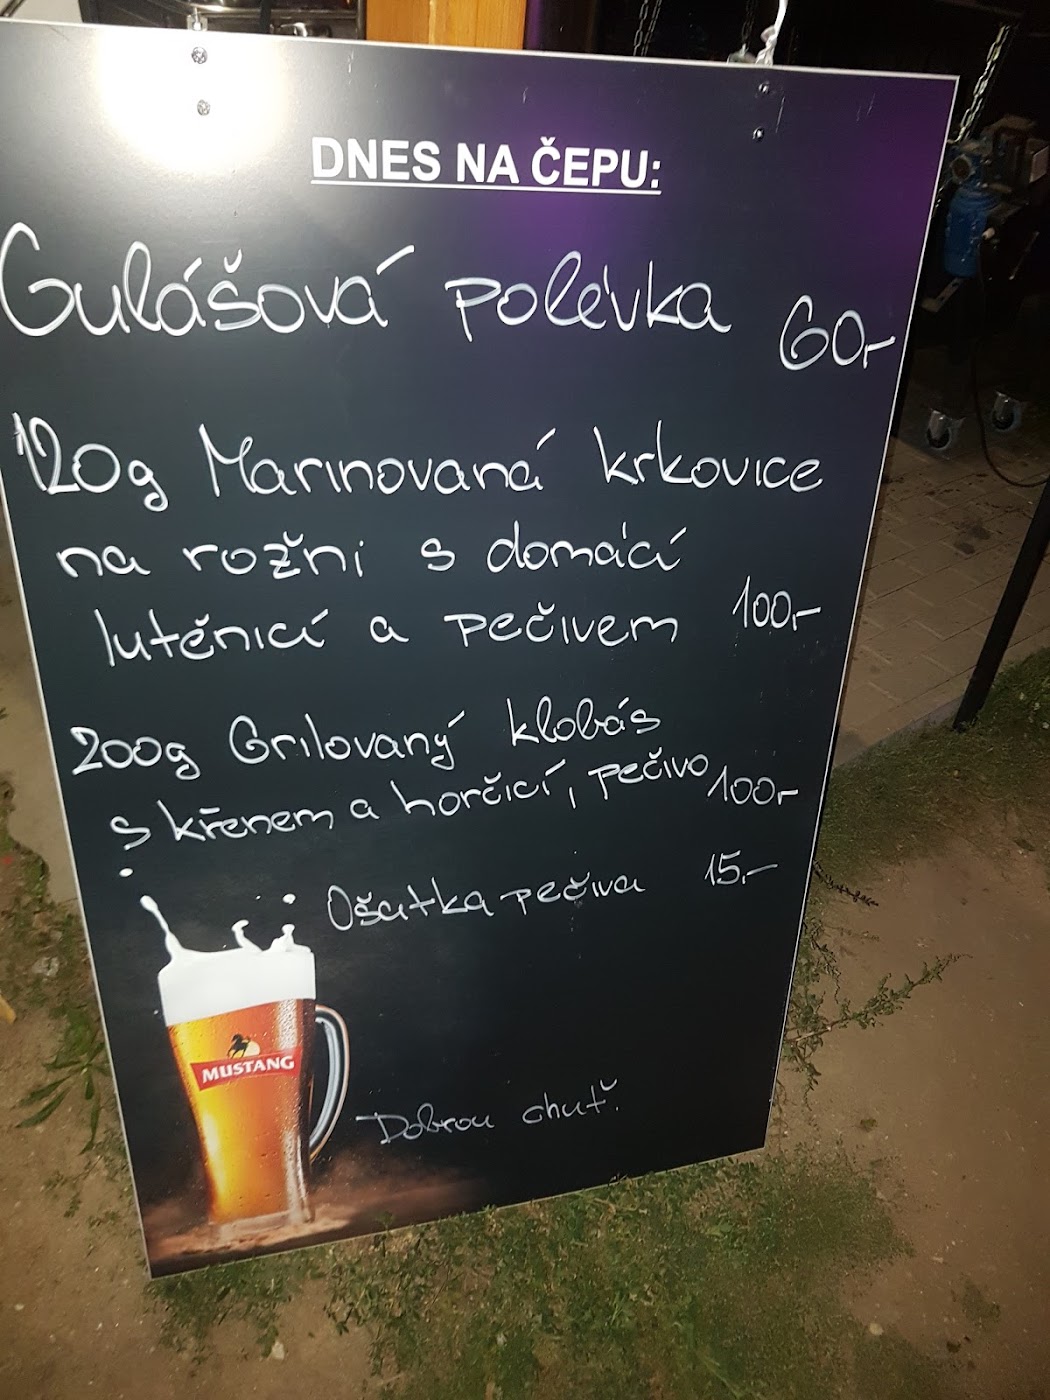 DNES NA ČEPU:
Gulášová polévka 60,-
120g Marinovaná krkovice
na rožni s domácí
luténicí a pečivem 100,-
200g Grilovaný klobás
s křenem a horčicí, pečivo 100,-
Ošatka pečiva 15,-
MUSTANG
Dobrou chuť.